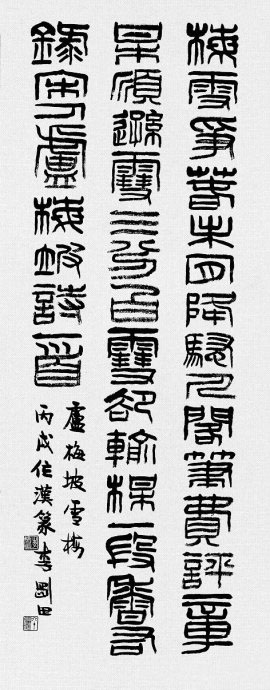 梅雪爭春未肯降騷人閣筆費評章
梅須遜雪三分白雪卻輸梅一段香
錄宋人盧梅坡詩一首
盧梅坡雪梅
丙戌作漢篆李剛田